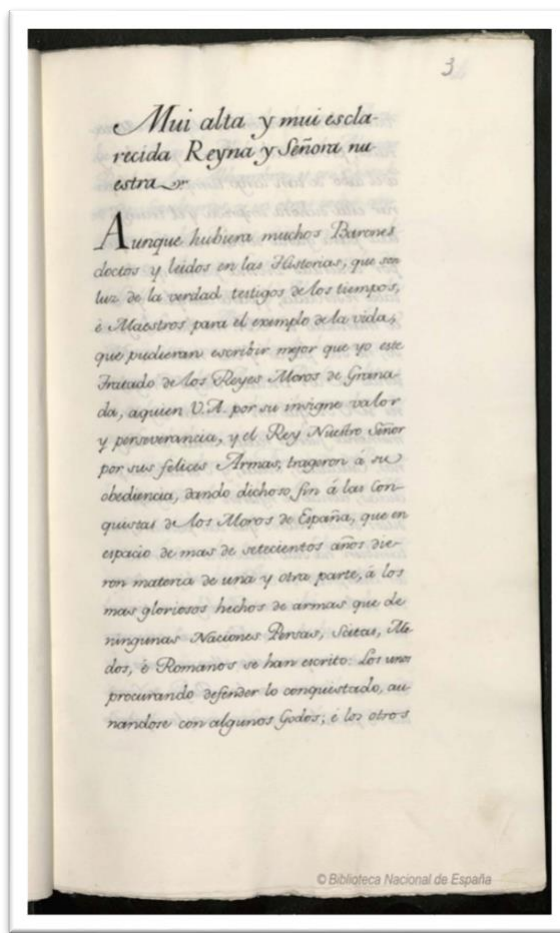 3
Mui alta y mui escla-
recida Reyna y Señora nu-
estra
Aunque hubiera muchos Barones
doctos y leidos en las Historias, que son
luz de la verdad testigos de los tiempos,
é Maestros para el exemplo de la vida,
que pudieran escribir mejor que yo este
Tratado de los Reyes Moros de Grana-
da, aquien V.A. por su insigne valor
y perseverancia, y el Rey Nuestro Señor
por sus felices Armas, trageron á su
obediencia, dando dichoso fin á las Con-
quistas de los Moros de España, que en
espacio de mas de setecientos años die-
ron materia de una y otra parte, á los
mas gloriosos hechos de armas que de
ningunas Naciones Persas, Scitas, Me-
dos, é Romanos se han escrito: Los unos
procurando defender lo conquistado, au-
nandose con algunos Godos; é los otros
© Biblioteca Nacional de España